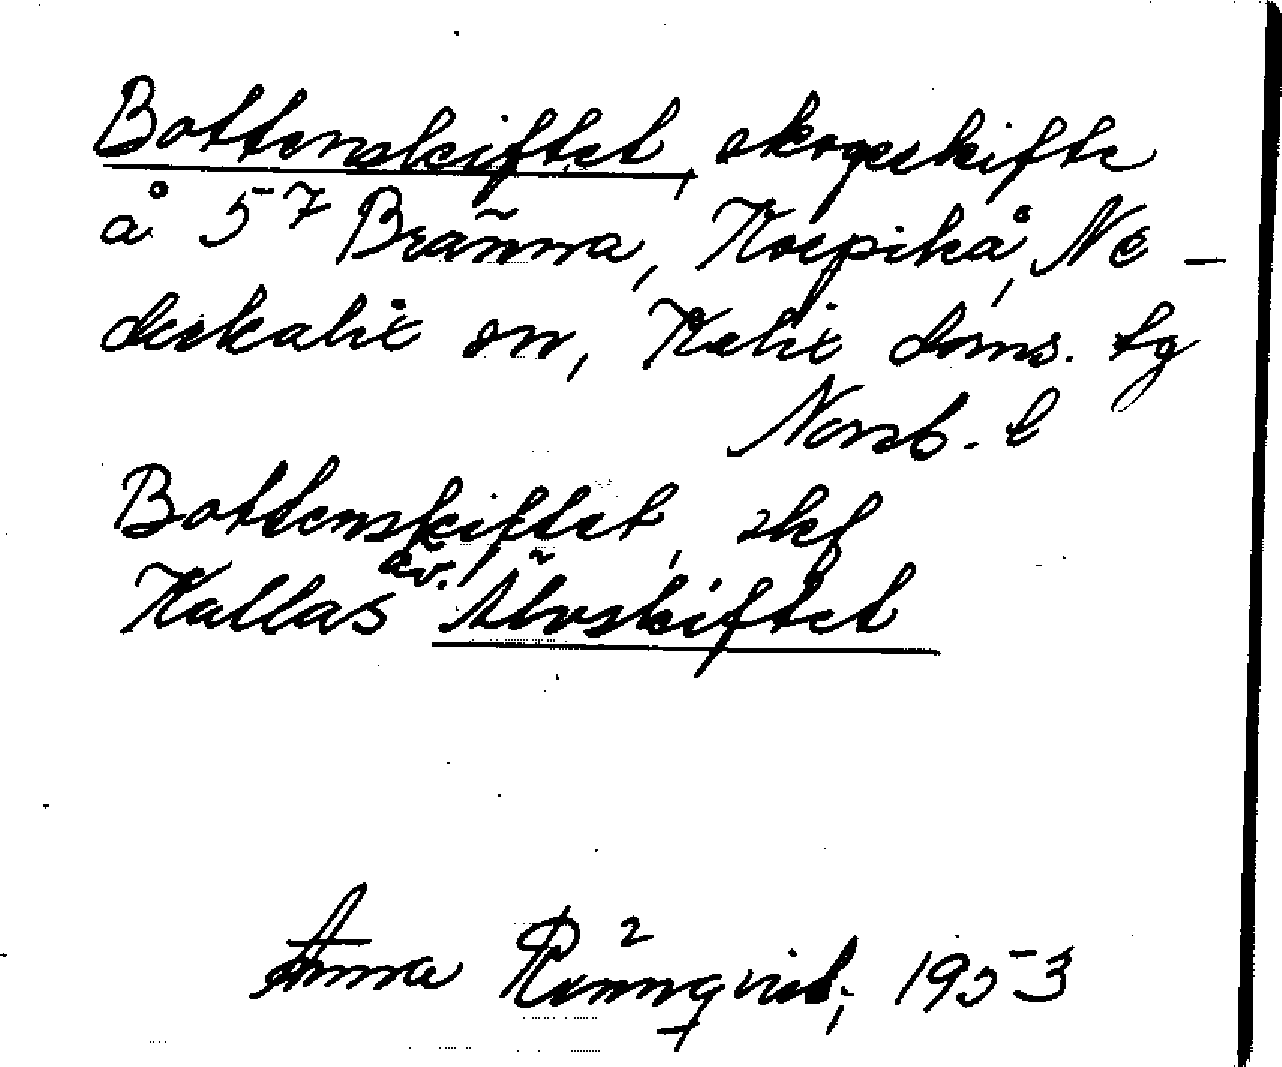 Bottenskiftet, skogsskifte
å 5⁷ Bränna, Korpikå, Ne-
derkalix sn, Kalix doms. lg
Norrb. l
Bottenskiftet, skf
Kallas äv. Älvskiftet
Anna Rönnqvist, 1953